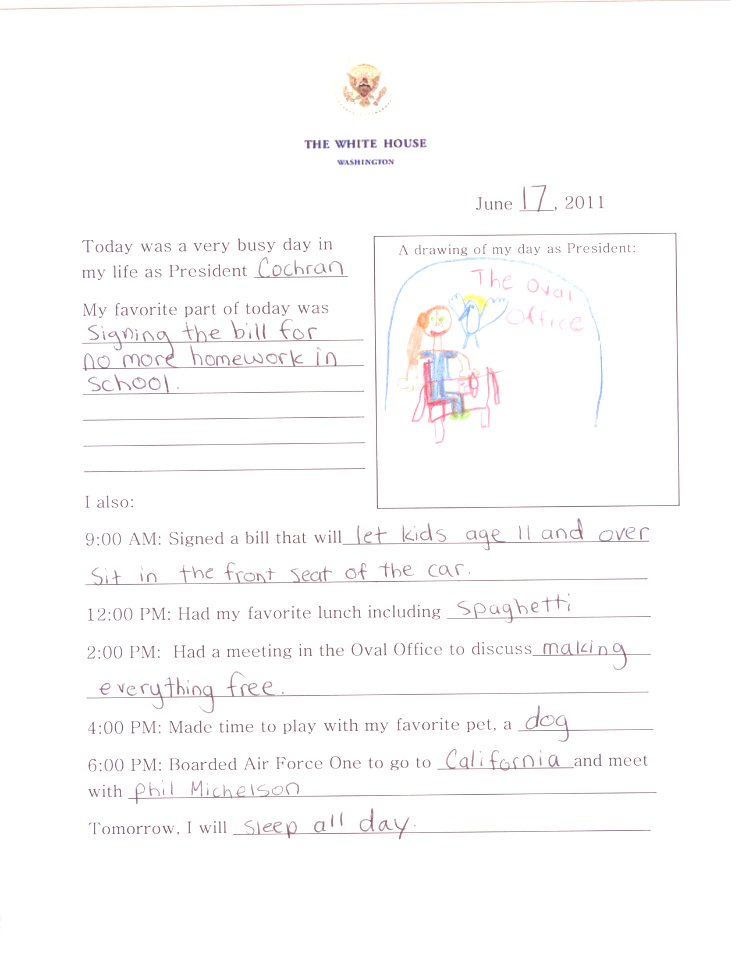 THE WHITE HOUSE
WASHINGTON
June 17, 2011
Today was a very busy day in
my life as President Cochran
My favorite part of today was
signing the bill for
no more homework in
school.
A drawing of my day as President:
The Oval
Office
I also:
9:00 AM: Signed a bill that will let kids age 11 and over
sit in the front seat of the car.
12:00 PM: Had my favorite lunch including spaghetti
2:00 PM: Had a meeting in the Oval Office to discuss making
everything free.
4:00 PM: Made time to play with my favorite pet, a dog
6:00 PM: Boarded Air Force One to go to California and meet
with Phil Michelson
Tomorrow, I will sleep all day.